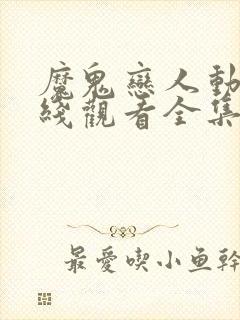 魔鬼戀人動
綫觀看全集
最愛喫小魚幹